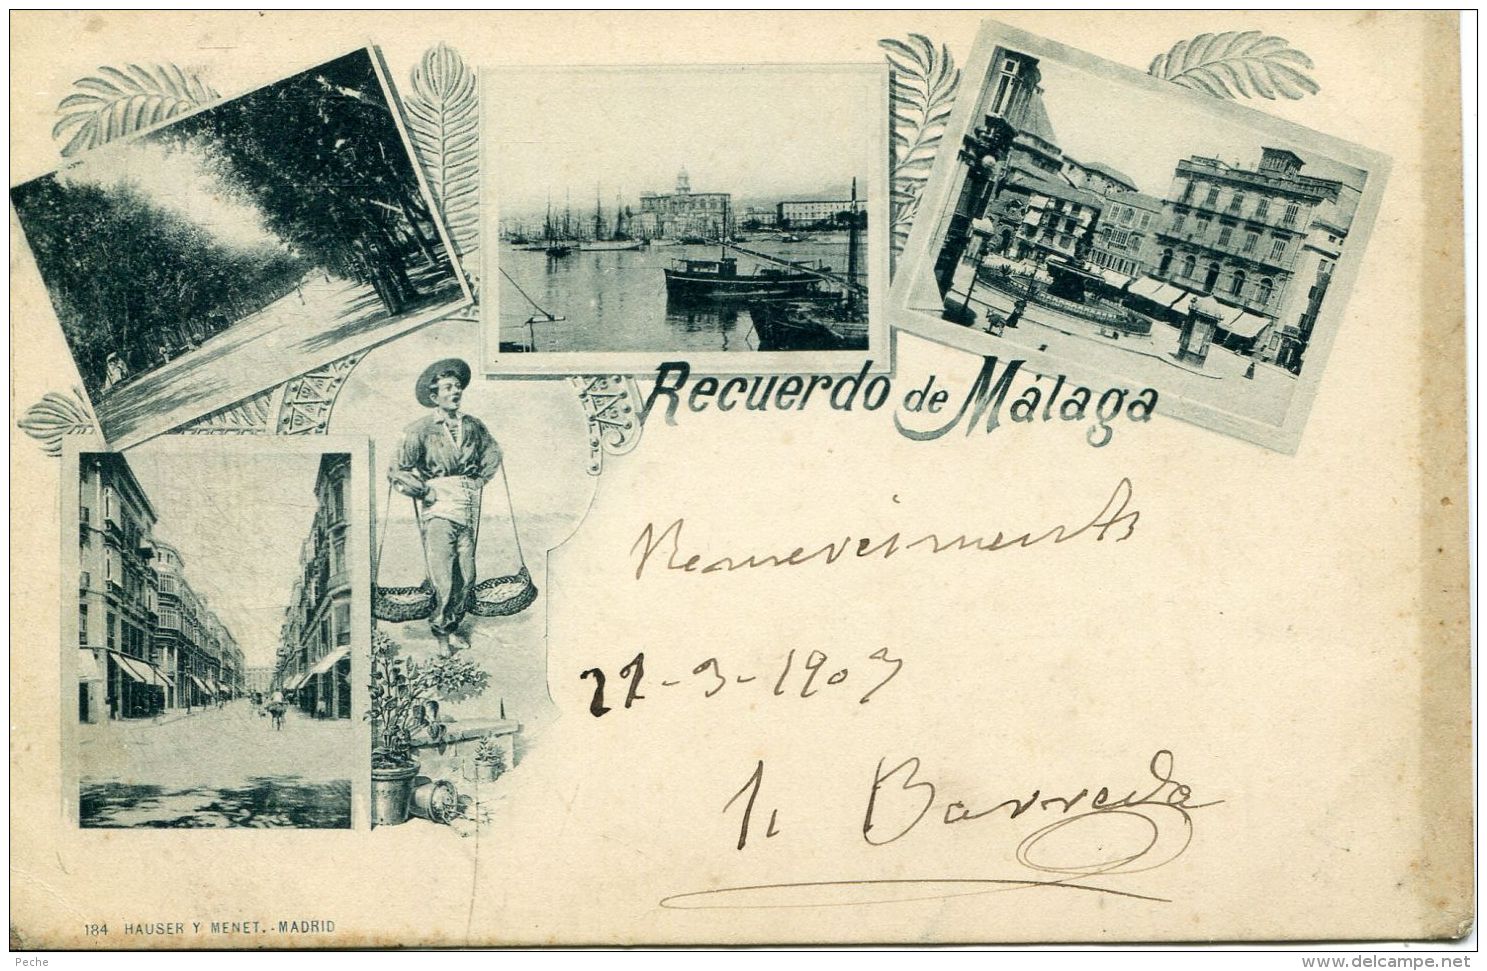 Recuerdo de Málaga
Remerciments
27-3-1903
Barreda
184 HAUSER Y MENET.-MADRID
Peche
delcampe.net